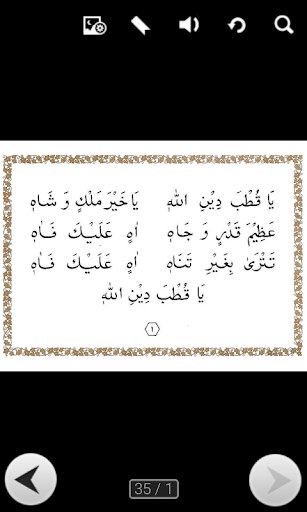 يَا قُطْبَ دِيْنِ اللهْ يَا خَيْرَ مَلْكٍ وَ شَاهْ
عَظِيْمَ قَدْرٍ وَ جَاهْ اٰهٍ عَلَيْكَ فَاٰهْ
تَتْرٰى بِغَيْرِ تَنَاهْ اٰهٍ عَلَيْكَ فَاٰهْ
يَا قُطْبَ دِيْنِ اللهْ
١
35 / 1